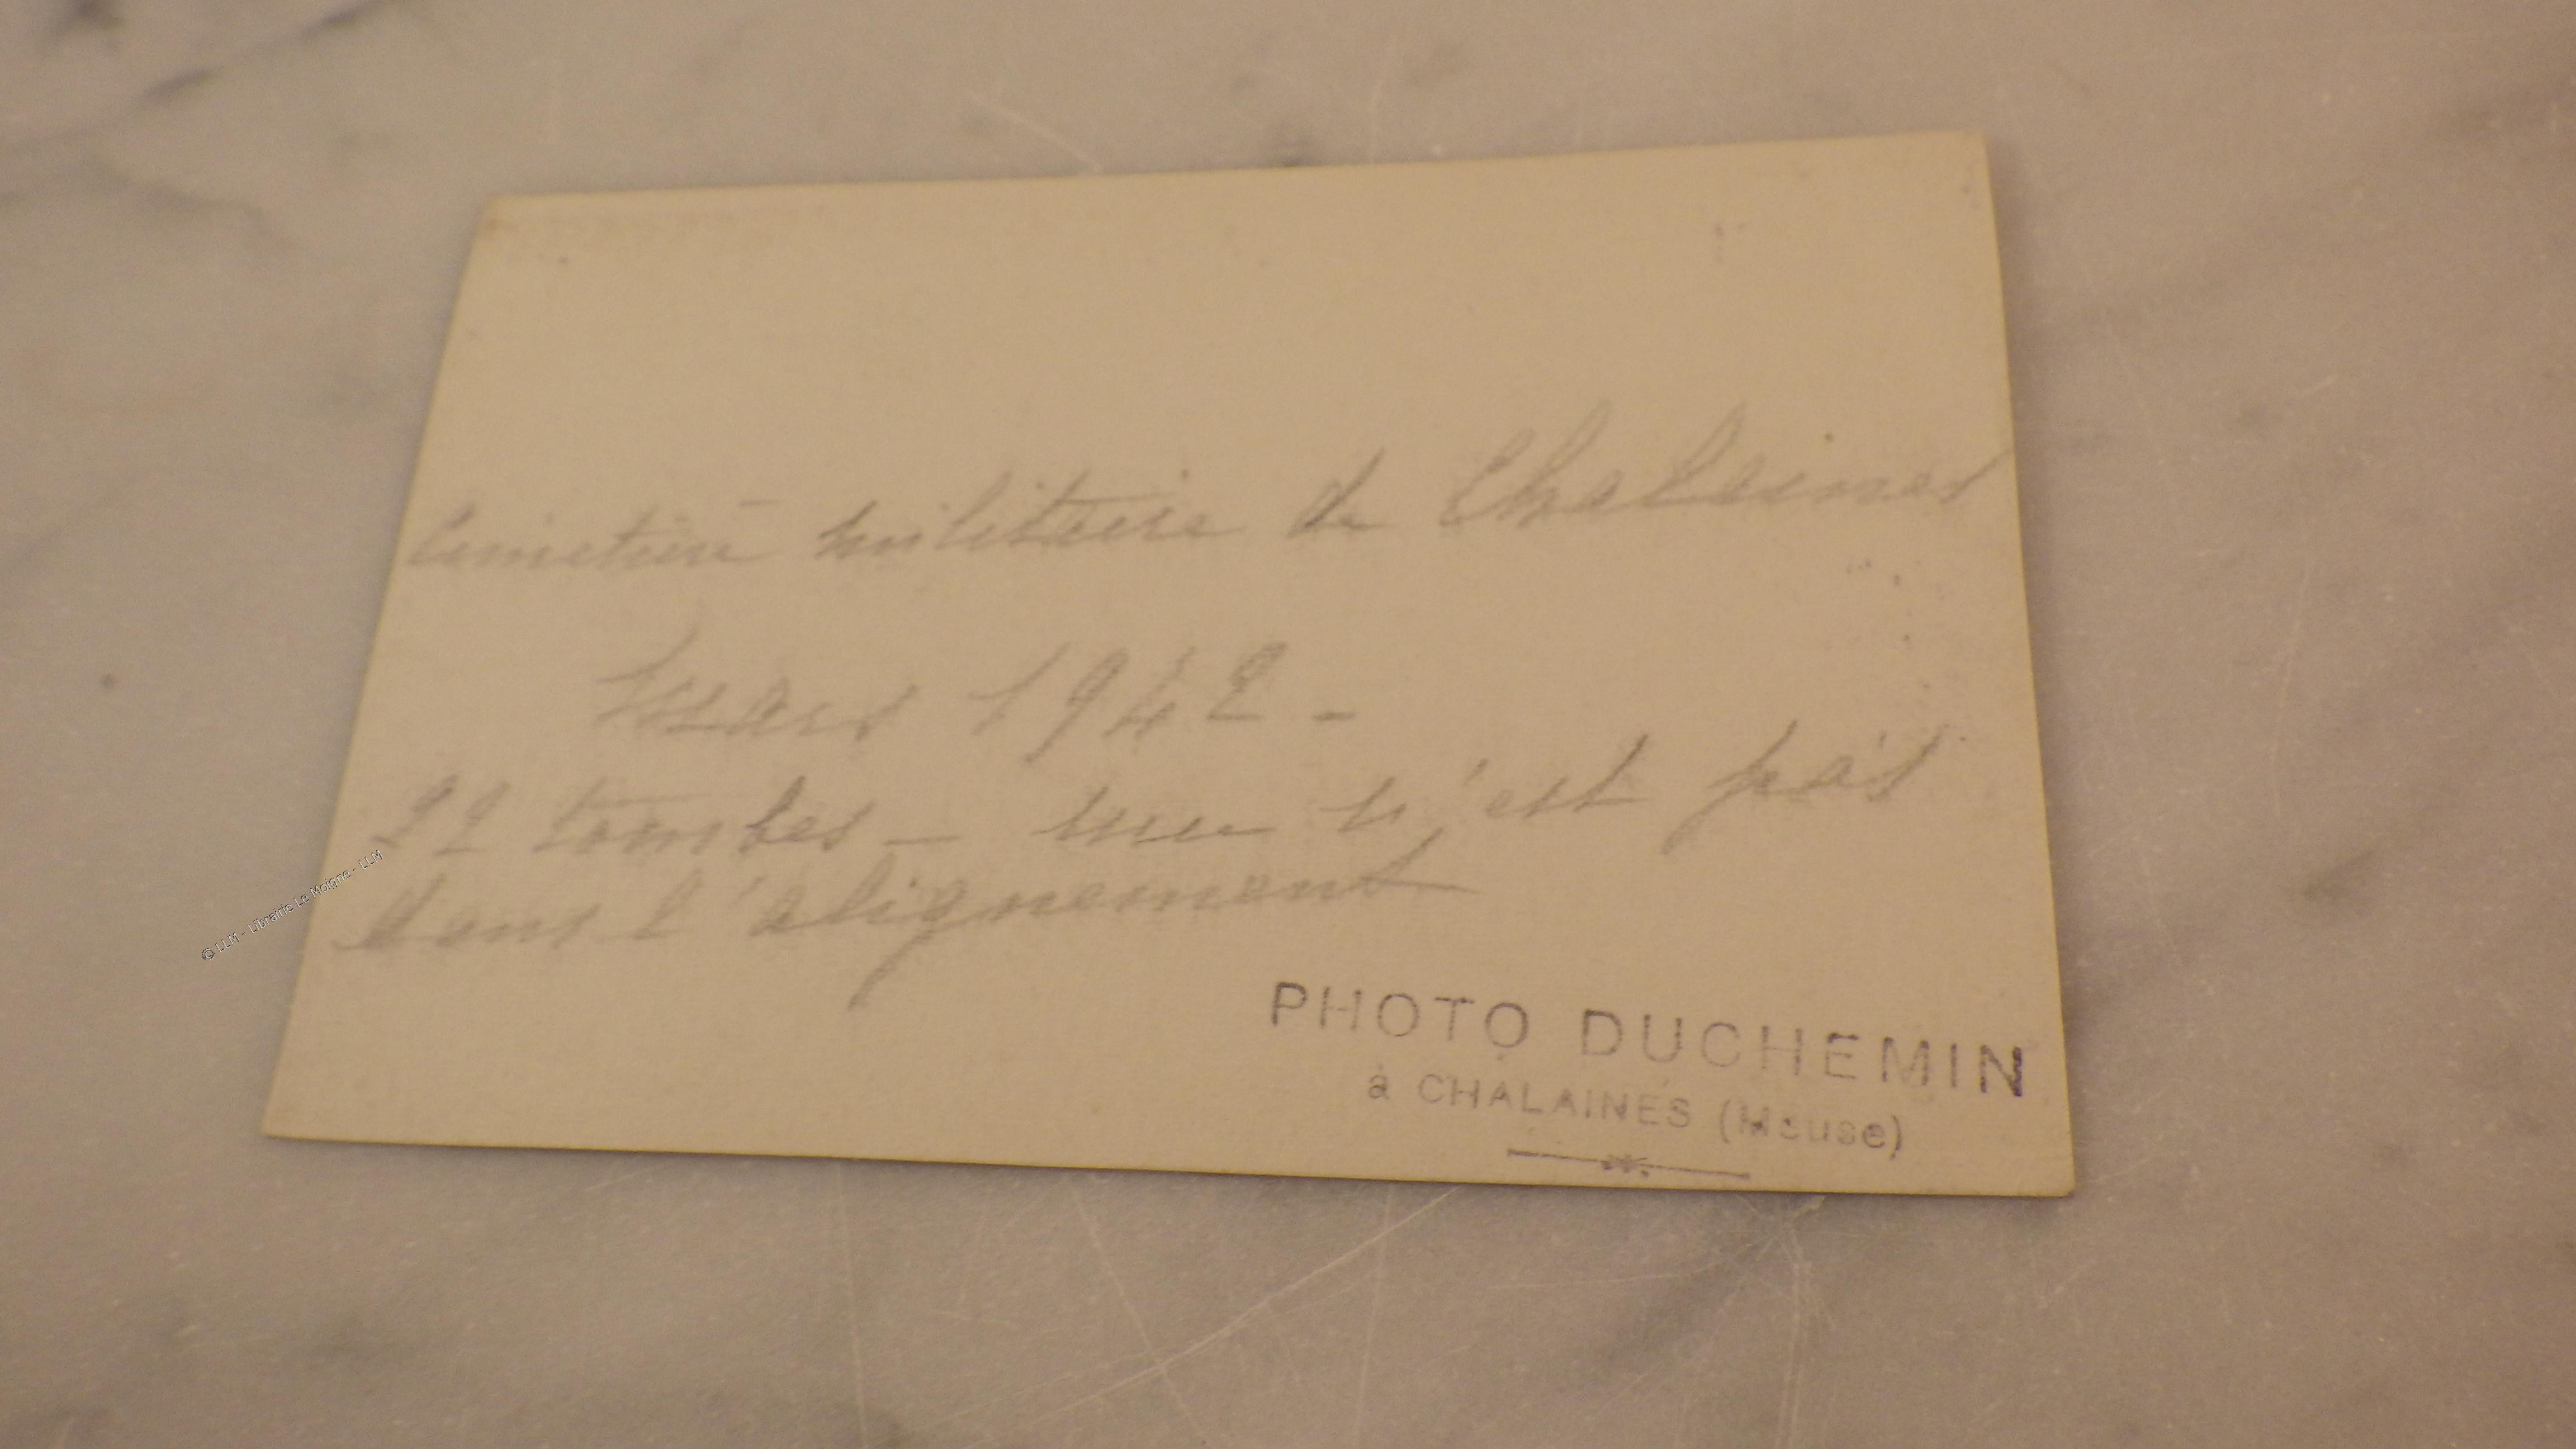 Cimetière militaire de Chalaines
Mars 1942 -
22 tombes - une n'est pas
dans l'alignement
PHOTO DUCHEMIN
à CHALAINES (Meuse)
© LLM - Librairie Le Moigne - LLM